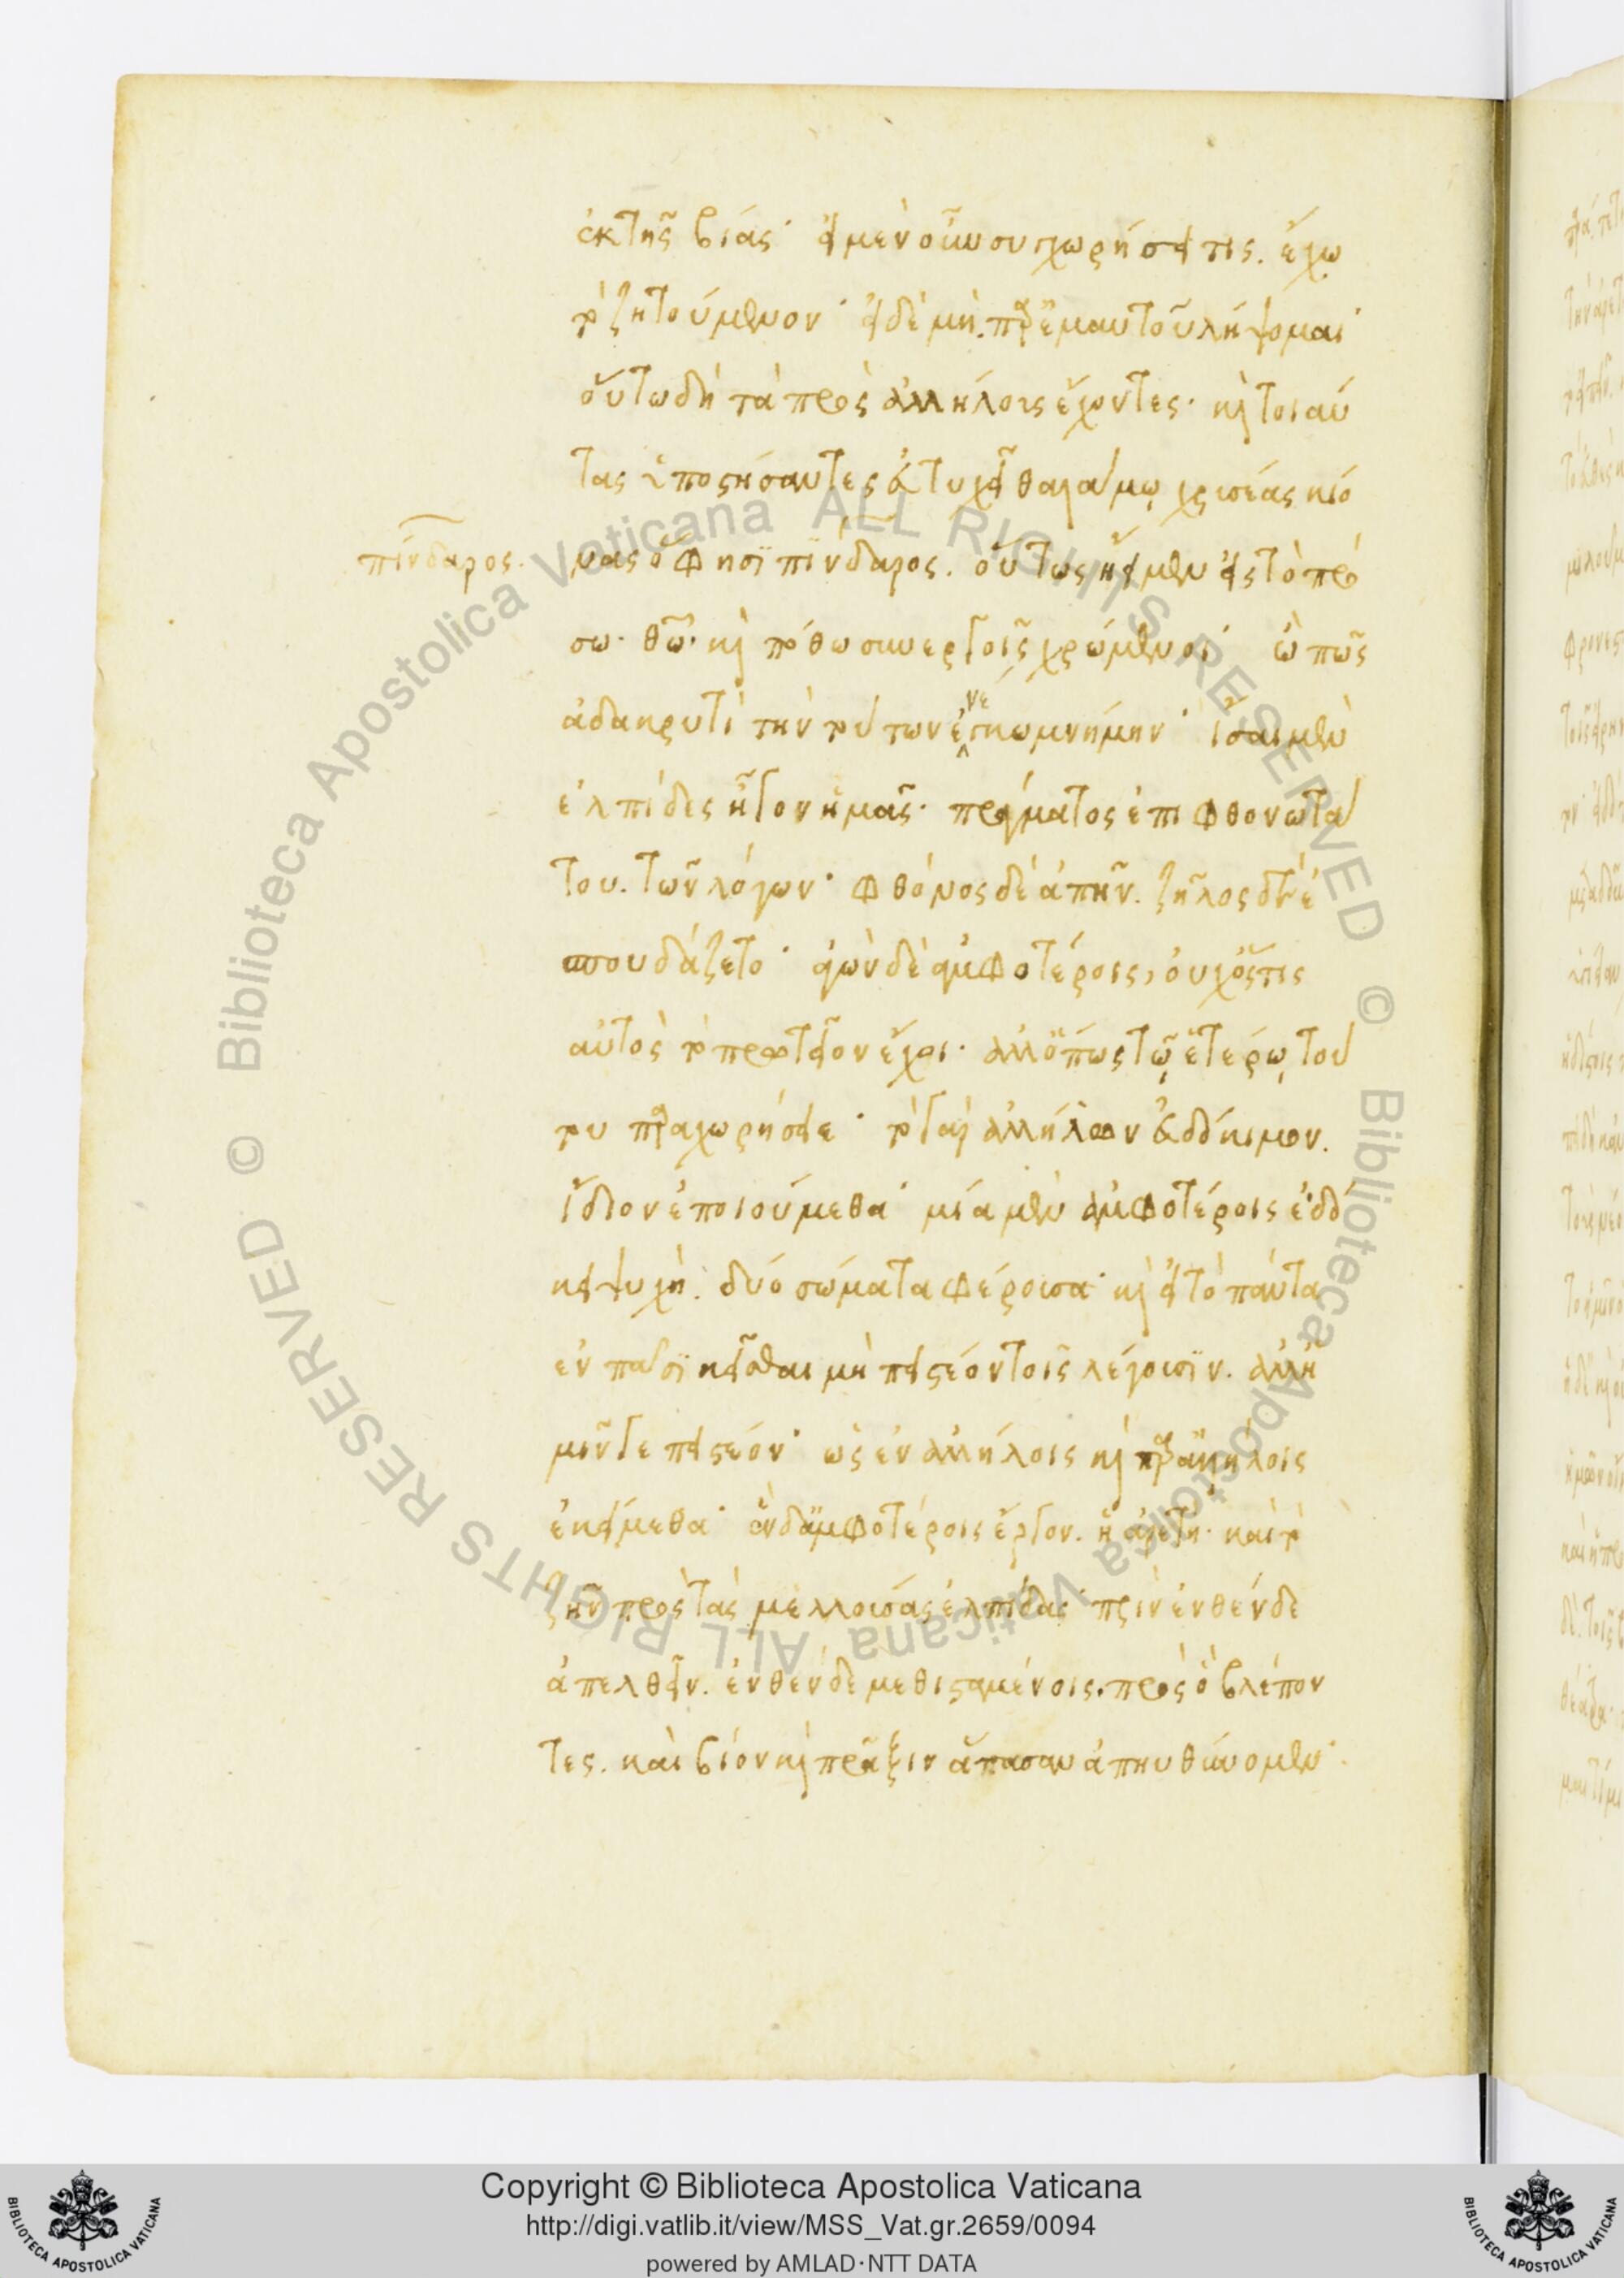 ἐκ τῆς βίας· εἰ μὲν οὖν συγχωρήσει τις. ἔχω
τὸ ζητούμενον· εἰ δὲ μὴ. παρ' ἐμαυτοῦ λήψομαι·
οὕτω δὴ τὰ πρὸς ἀλλήλους ἔχοντες· καὶ τοιαύ
τας ὑποστήσαντες εὐτυχεῖ θαλάμῳ χρυσέας κίο
πίνδαρος.
νας ὥς φησι πίνδαρος. οὕτως ᾔειμεν εἰς τὸ πρό
σω· θεῷ· καὶ πόθῳ συνεργοῖς χρώμενοι· ὢ πῶς
ἀδακρυτὶ τὴν τούτων ἐνέγκω μνήμην· ἴσαι μὲν
ἐλπίδες ἦγον ἡμᾶς· πράγματος ἐπιφθονωτά
του. τῶν λόγων· φθόνος δὲ ἀπῆν. ζῆλος δὲ ἐ
σπουδάζετο· ἀγὼν δὲ ἀμφοτέροις, οὐχ ὅστις
αὐτὸς τὸ πρωτεῖον ἔχοι· ἀλλ' ὅπως τῷ ἑτέρῳ τού
του παραχωρήσειε· τὸ γὰρ ἀλλήλων εὐδόκιμον.
ἴδιον ἐποιούμεθα· μία μὲν ἀμφοτέροις ἐδό
κει ψυχὴ. δύο σώματα φέρουσα· καὶ εἰ τὸ πάντα
ἐν πᾶσι κεῖσθαι μὴ πειστέον τοῖς λέγουσιν. ἀλλ' ἡ
μῖν γε πειστέον· ὡς ἐν ἀλλήλοις καὶ παρ' ἀλλήλοις
ἐκείμεθα· ἓν δ' ἀμφοτέροις ἔργον. ἡ ἀρετὴ· καὶ τὸ
ζῆν πρὸς τὰς μελλούσας ἐλπίδας πρὶν ἐνθένδε
ἀπελθεῖν. ἐνθένδε μεθισταμένοις. πρὸς ὃ βλέπον
τες. καὶ βίον καὶ πρᾶξιν ἅπασαν ἀπηυθύνομεν·
Copyright © Biblioteca Apostolica Vaticana
http://digi.vatlib.it/view/MSS_Vat.gr.2659/0094
powered by AMLAD·NTT DATA
BIBLIOTECA APOSTOLICA VATICANA
BIBLIOTECA APOSTOLICA VATICANA
© Biblioteca Apostolica Vaticana ALL RIGHTS RESERVED
© Biblioteca Apostolica Vaticana ALL RIGHTS RESERVED